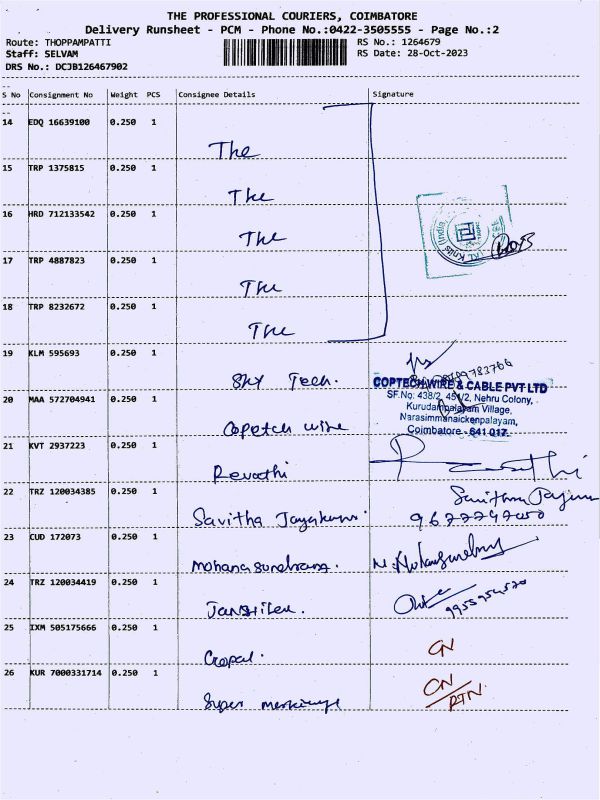 THE PROFESSIONAL COURIERS, COIMBATORE
Delivery Runsheet - PCM - Phone No.:0422-3505555 - Page No.:2
Route: THOPPAMPATTI RS No.: 1264679
Staff: SELVAM RS Date: 28-Oct-2023
DRS No.: DCJB126467902
S No Consignment No Weight PCS Consignee Details Signature
14 EDQ 16639100 0.250 1 The
15 TRP 1375815 0.250 1 The
16 HRD 712133542 0.250 1 The
17 TRP 4887823 0.250 1 The
18 TRP 8232672 0.250 1 The
19 KLM 595693 0.250 1 Sky Tech.
COPTECH WIRE & CABLE PVT LTD
SF.No: 438/2, 451/2, Nehru Colony,
Kurudampalayam Village,
Narasimmanaickenpalayam,
Coimbatore - 641 017.
20 MAA 572704941 0.250 1 Copetch wire
21 KVT 2937223 0.250 1 Revathi
22 TRZ 120034385 0.250 1 Savitha Jayakumar
23 CUD 172073 0.250 1 Mohanasundaram.
24 TRZ 120034419 0.250 1
25 IXM 505175666 0.250 1 Gopal. CN
26 KUR 7000331714 0.250 1 Super CN/RTN